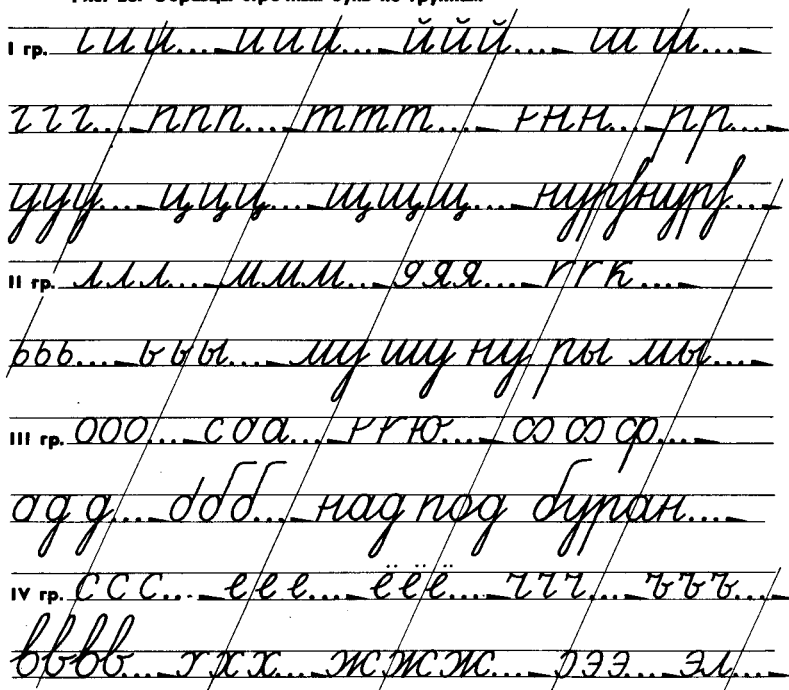 Образцы строчных букв по группам
I гр. и и и.... и и и.... й й й.... ш ш....
г г г.... п п п.... т т т.... н н н.... р р....
у у у.... ц ц ц.... щ щ щ.... нурфнурф....
II гр. л л л.... м м м.... я я я.... г г к....
ь ь ь.... ь ь ы.... му шу ну ры мы....
III гр. о о о.... с а а.... г г ю.... ф....
о д д.... б б б.... над под буран....
IV гр. с с с.... е е е.... ё ё ё.... ч ч ч.... ъ ъ ъ....
в в в в.... х х х.... ж ж ж.... э э э.... эл....